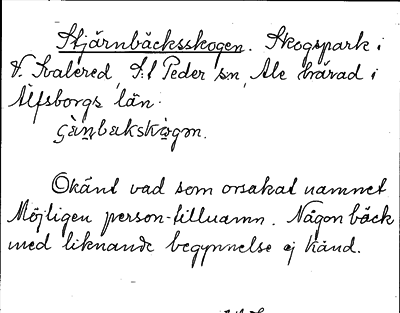 Stjärnbäcksskogen. Skogspark i
V. Kvalered, S:t Peder sn, Ale härad i
Älfsborgs län.

Okänt vad som orsakat namnet
Möjligen person-tillnamn. Någon bäck
med liknande begynnelse ej känd.